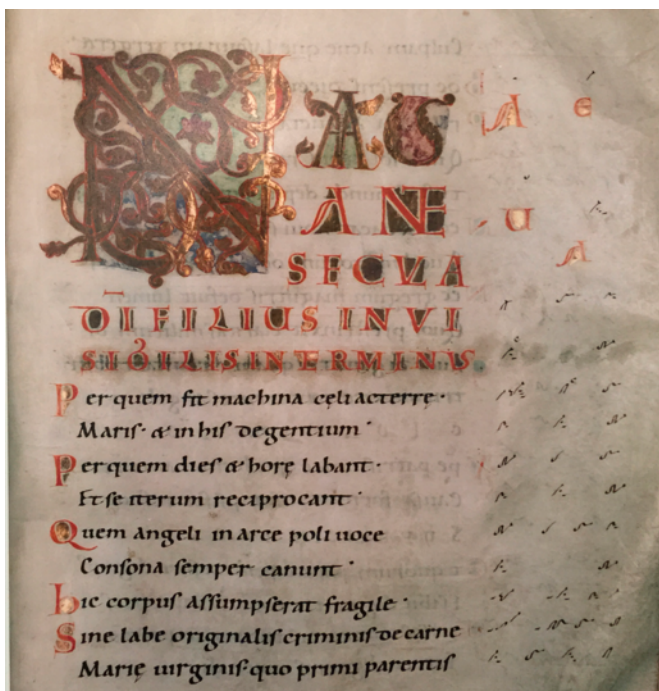 NAT A E
ANTE U
SECULA A
DI FILIUS INVI
SIBILIS INTERMINUS
Per quem fit machina cęli ac terrę·
Maris· & in hiſ degentium·
Per quem dieſ & horę labant·
Et ſe iterum reciprocant·
Quem angeli in arce poli uoce
Conſona ſemper canunt·
hic corpuſ aſſumpſerat fragile·
Sine labe originaliſ criminiſ de carne
Marię uirginiſ· quo primi parentiſ